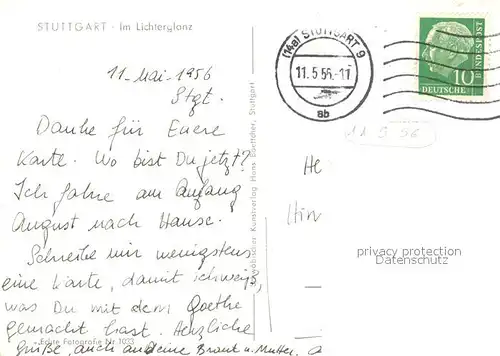 STUTTGART · Im Lichterglanz
11. Mai-1956
Stgt.
Danke für Euere
Karte. Wo bist Du jetzt?
Ich fahre am Anfang
August nach Hause.
Schreibe mir wenigstens
eine Karte, damit ich weiß,
was Du mit dem Goethe
gemacht hast. Herzliche
Grüße, auch an deine Braut u. Mutter.
Echte Fotografie Nr. 1033
Schwäbischer Kunstverlag Hans Boettcher, Stuttgart
(14a) STUTTGART 9
11.5.56.-17
ab
10
DEUTSCHE
BUNDESPOST
11 5 56
He
Hin
privacy protection
Datenschutz